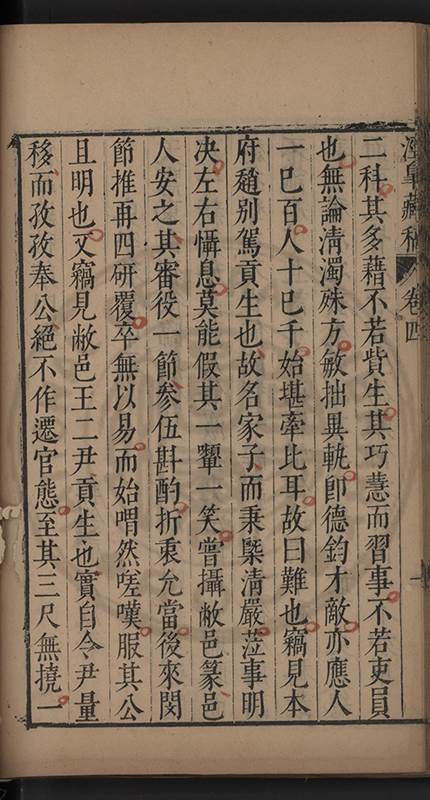 涇皋藏稿 卷四
二科其多藉不若貲生其巧慧而習事不若吏員
也無論清濁殊方敏拙異軌卽德鈞才敵亦應人
一巳百人十巳千始堪牽比耳故曰難也竊見本
府趙别駕貢生也故名家子而秉槩清嚴蒞事明
决左右懾息莫能假其一顰一笑嘗攝敝邑篆邑
人安之其審役一節叅伍斟酌折衷允當後來閔
節推再四研覆卒無以易而始喟然嗟嘆服其公
且明也又竊見敝邑王二尹貢生也實自令尹量
移而孜孜奉公絕不作遷官態至其三尺無撓一